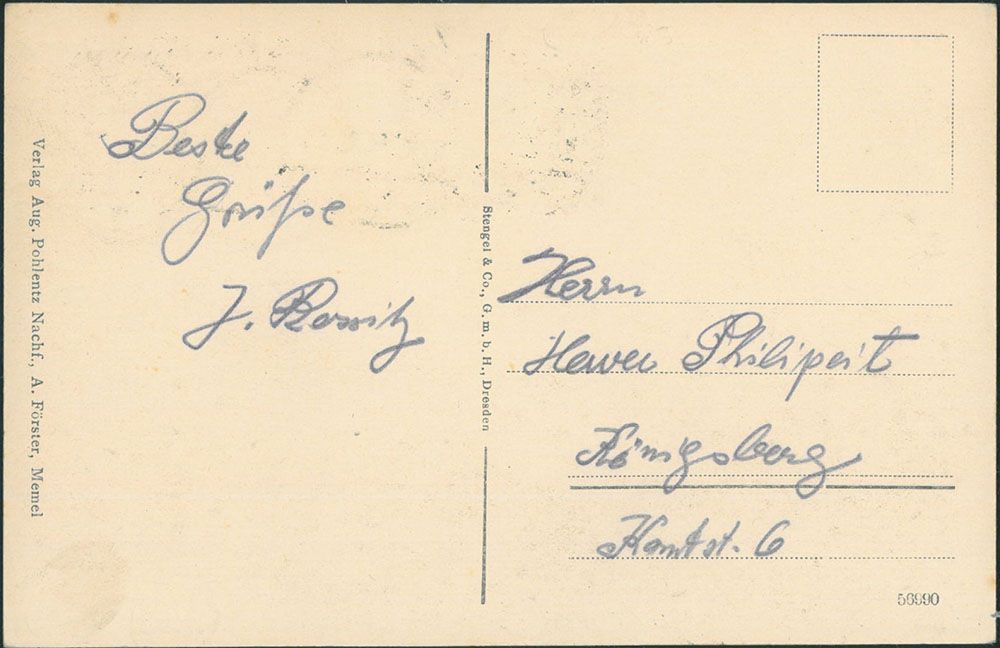 Verlag Aug. Pohlentz Nachf., A. Förster, Memel
Beste
Grüße
J.
Stengel & Co., G. m. b. H., Dresden
Herrn
Philipeit
Königsberg
Kantst. 6
56990